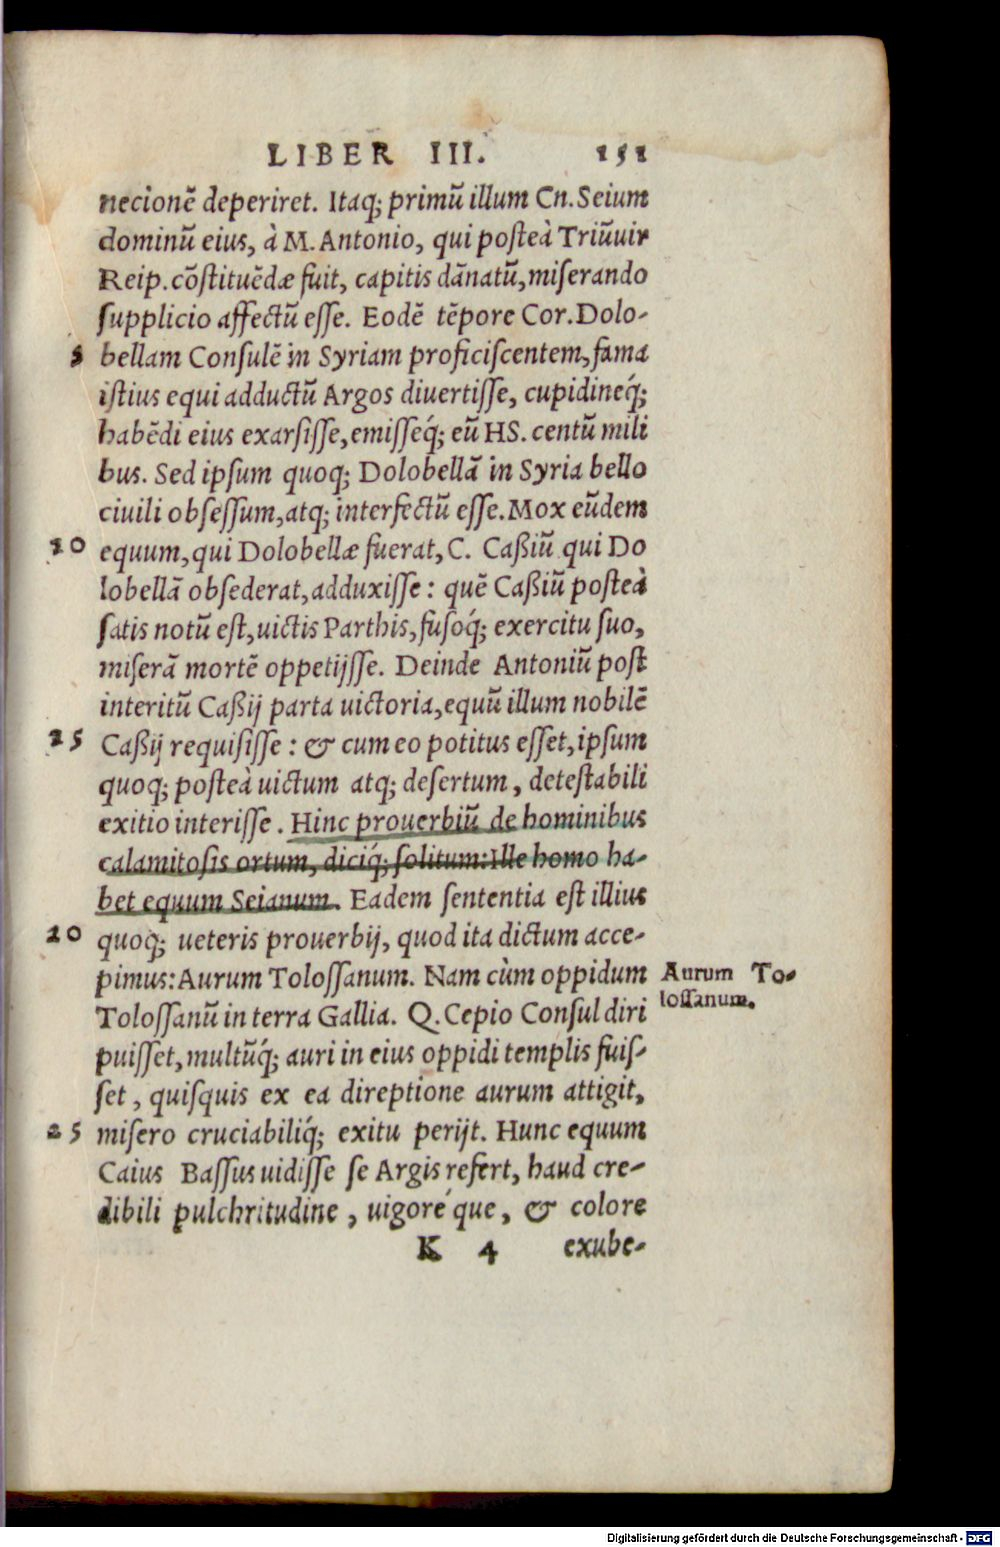 LIBER III. 151
necionē deperiret. Itaq; primū illum Cn. Seium
dominū eius, à M. Antonio, qui posteà Triūuir
Reip. cōstituēdæ fuit, capitis dānatū, miserando
supplicio affectū esse. Eodē tēpore Cor. Dolo-
5 bellam Consulē in Syriam proficiscentem, fama
istius equi adductū Argos diuertisse, cupidineq́;
habēdi eius exarsisse, emisseq́; eū HS. centū mili
bus. Sed ipsum quoq; Dolobellā in Syria bello
ciuili obsessum, atq; interfectū esse. Mox eūdem
10 equum, qui Dolobellæ fuerat, C. Caßiū qui Do
lobellā obsederat, adduxisse: quē Caßiū posteà
satis notū est, uictis Parthis, fusoq́; exercitu suo,
miserā mortē oppetijsse. Deinde Antoniū post
interitū Caßij parta uictoria, equū illum nobilē
15 Caßij requisisse: & cum eo potitus esset, ipsum
quoq; posteà uictum atq; desertum, detestabili
exitio interisse. Hinc prouerbiū de hominibus
calamitosis ortum, diciq́; solitum: Ille homo ha-
bet equum Seianum. Eadem sententia est illius
20 quoq; ueteris prouerbij, quod ita dictum acce-
pimus: Aurum Tolossanum. Nam cùm oppidum
Aurum To-
lossanum.
Tolossanū in terra Gallia. Q. Cepio Consul diri
puisset, multūq́; auri in eius oppidi templis fuis-
set, quisquis ex ea direptione aurum attigit,
25 misero cruciabiliq́; exitu perijt. Hunc equum
Caius Bassus uidisse se Argis refert, haud cre-
dibili pulchritudine, uigoré que, & colore
K 4 exube-
Digitalisierung gefördert durch die Deutsche Forschungsgemeinschaft - DFG